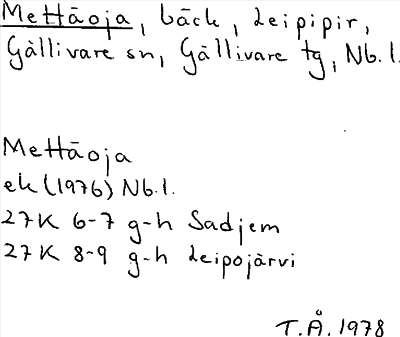 Mettäoja, bäck, Leipipir,
Gällivare sn, Gällivare tg, Nb.l.
Mettäoja
ek (1976) Nb.l.
27K 6-7 g-h Sadjem
27K 8-9 g-h Leipojärvi
T.Å. 1978